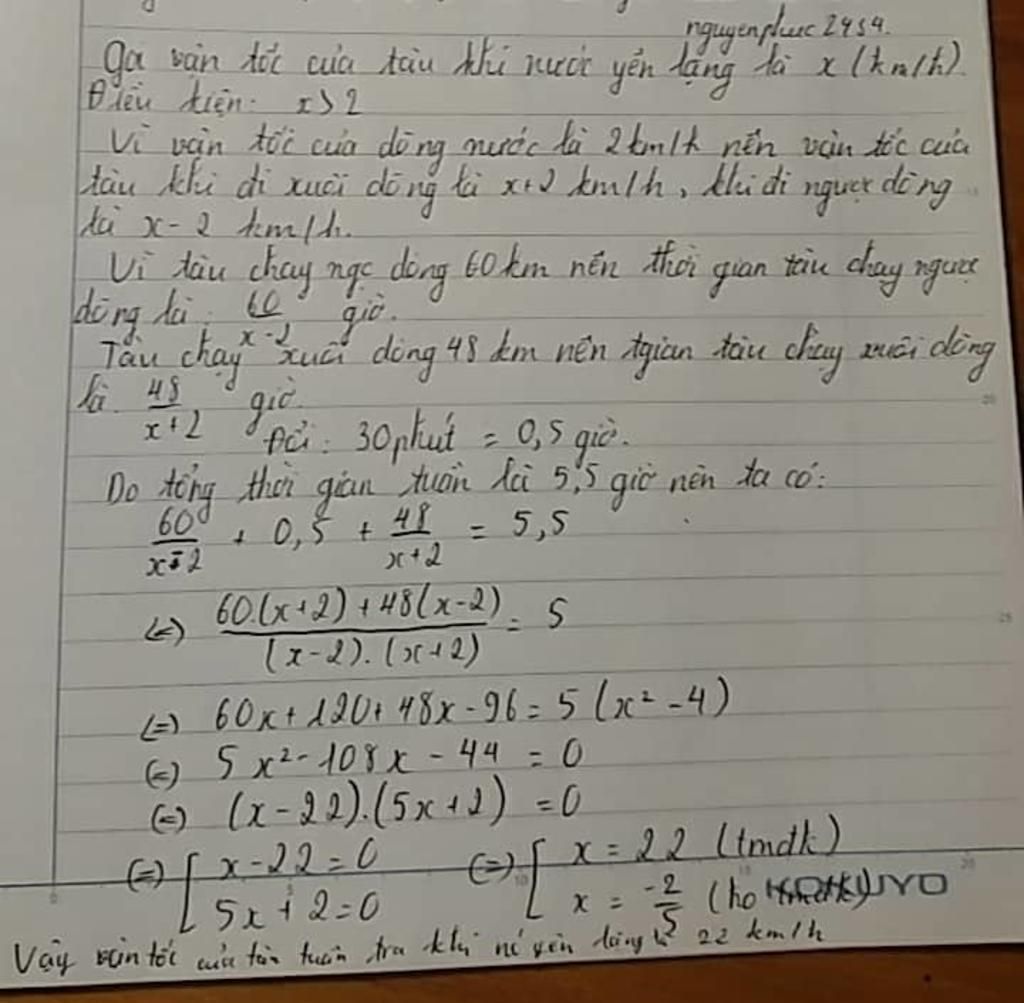 nguyenphuc2454.
Gọi vận tốc của tàu khi nước yên lặng là x (km/h).
Điều kiện: x > 2
Vì vận tốc của dòng nước là 2km/h nên vận tốc của
tàu khi đi xuôi dòng là x+2 km/h, khi đi ngược dòng
là x-2 km/h.
Vì tàu chạy ngc dòng 60km nên thời gian tàu chạy ngược
dòng là: 60/(x-2) giờ.
Tàu chạy xuôi dòng 48 km nên tgian tàu chạy xuôi dòng
là 48/(x+2) giờ.
Đổi: 30phút = 0,5 giờ.
Do tổng thời gian tuần là 5,5 giờ nên ta có:
60/(x-2) + 0,5 + 48/(x+2) = 5,5
(=) (60.(x+2) + 48(x-2))/((x-2).(x+2)) = 5
(=) 60x + 120 + 48x - 96 = 5 (x² - 4)
(=) 5x² - 108x - 44 = 0
(=) (x-22).(5x+2) = 0
(=) [ x-22=0 (=) [ x = 22 (tmdk)
5x+2=0 x = -2/5 (ko tmdk)
KOKUYO
Vậy vận tốc của tàu tuần tra khi nc yên lặng là 22 km/h